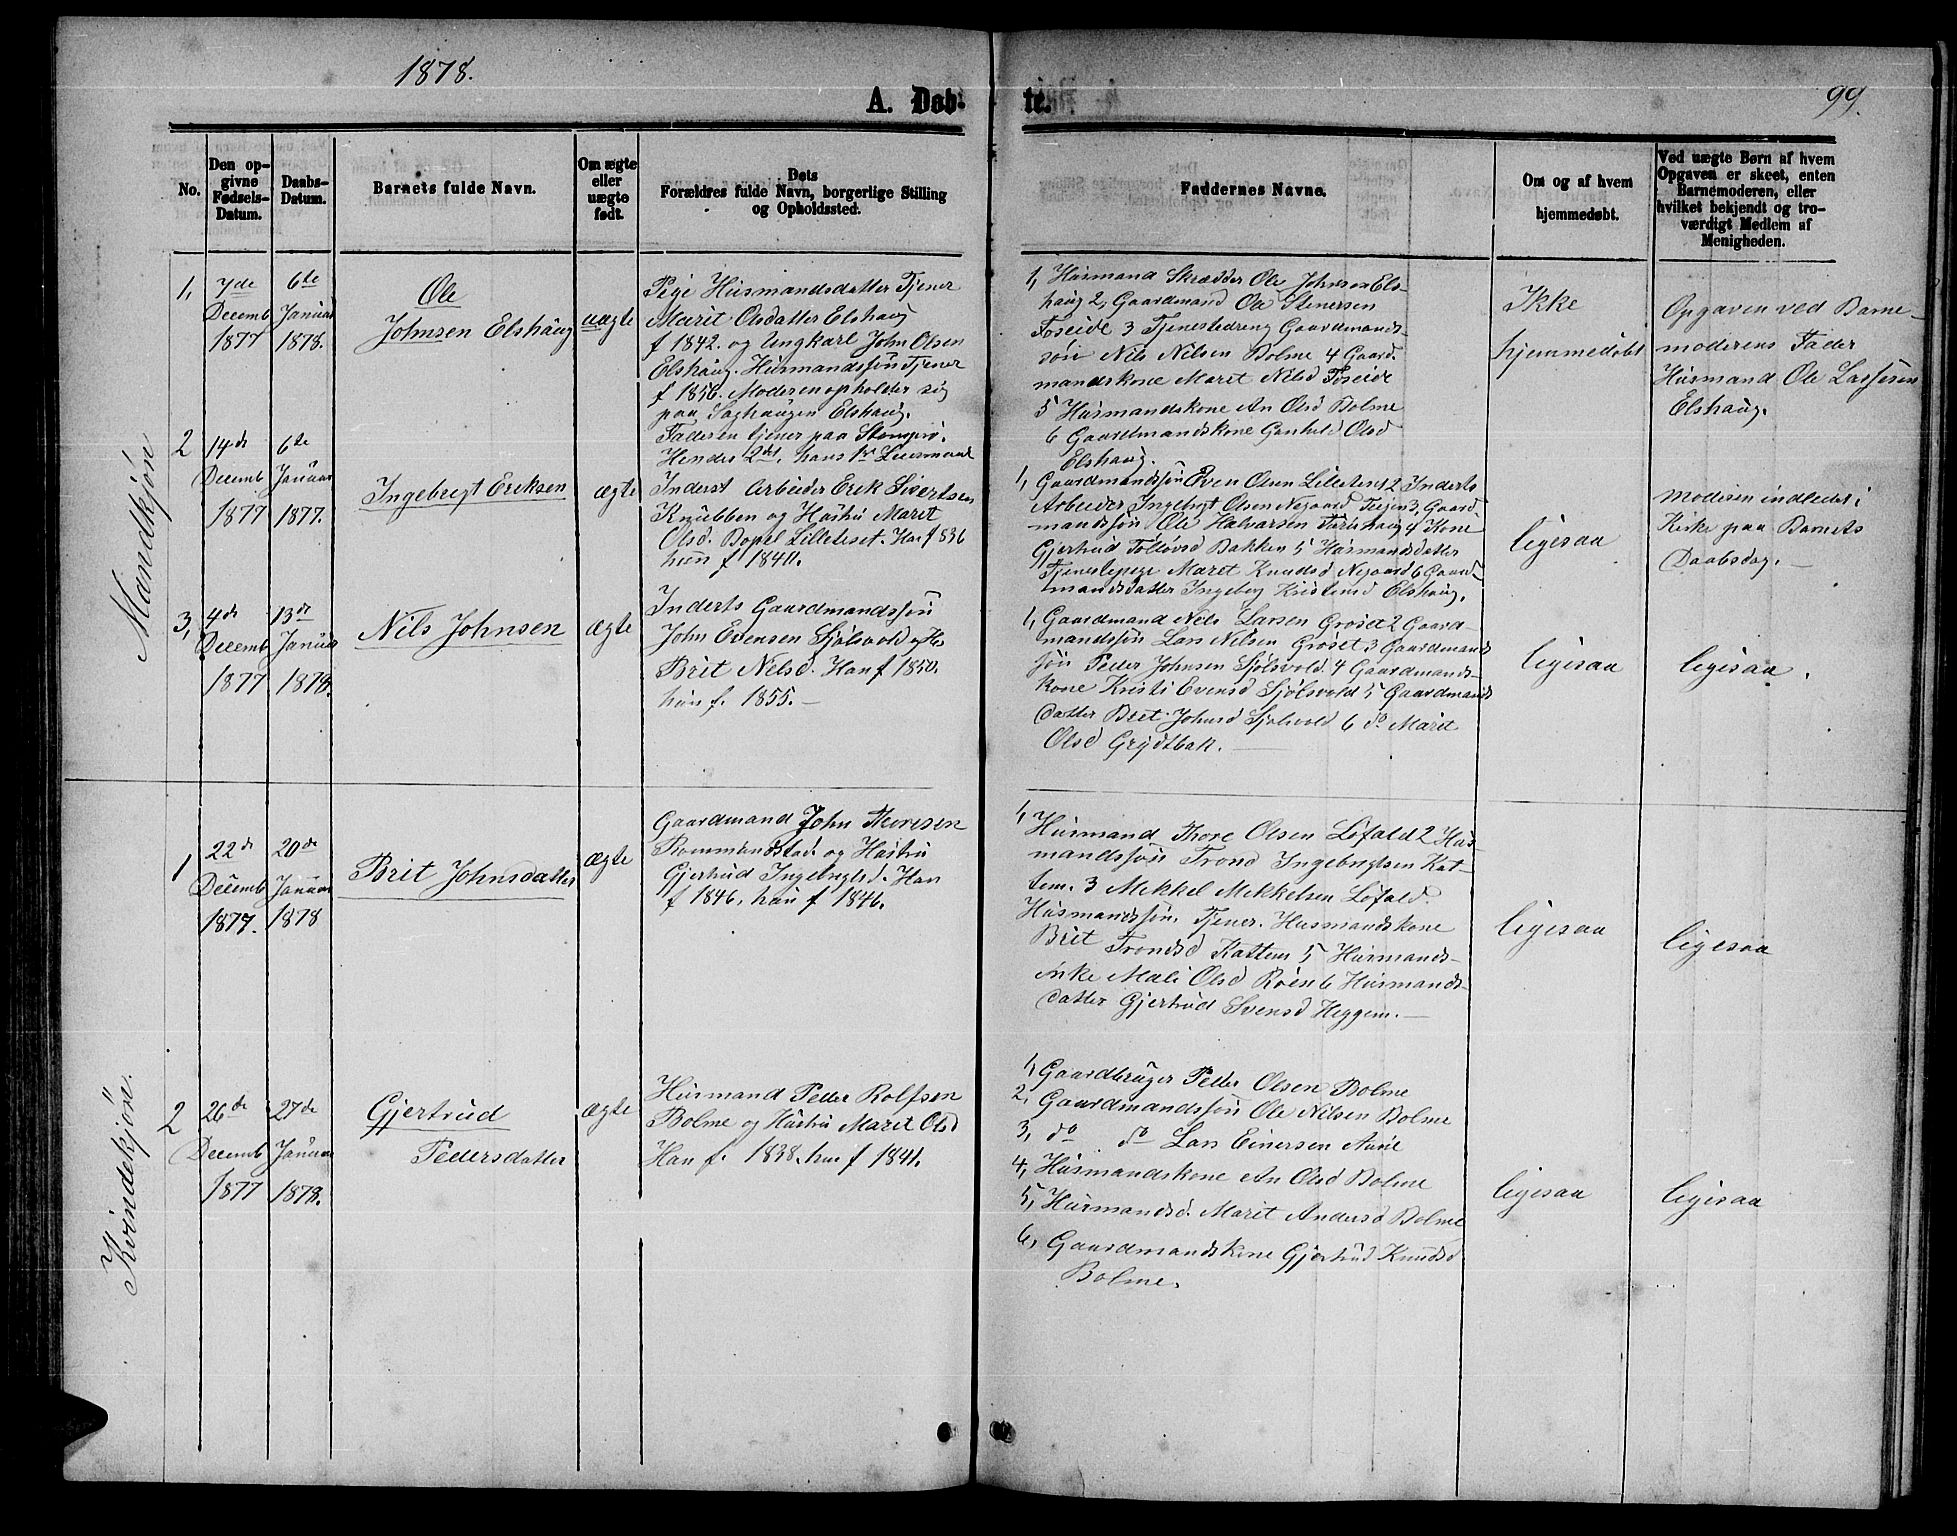 1878.
99.
A. Døb-
te.
No.
Den op-
givne
Fødsels-
Datum.
Daabs-
Datum.
Barnets fulde Navn.
Om ægte
eller
uægte
født.
Dets
Forældres fulde Navn, borgerlige Stilling
og Opholdssted.
Faddernes Navne.
Om og af hvem
hjemmedøbt.
Ved uægte Børn af hvem
Opgaven er skeet, enten
Barnemoderen, eller
hvilket bekjendt og tro-
værdigt Medlem af
Menigheden.
Mandkjøn
1,
7de
Decemb
1877
6te
Januar
1878.
Ole
Johnsen Elshaug
uægte
Pige Husmandsdatter Tjener
Marit Olsdatter Elshaug
f 1842. og Ungkarl John Olsen
Elshaug. Husmandssøn Tjener
f 1856. Moderen opholder sig
paa Saghaugen Elshaug.
Faderen tjener paa
Hendes 2det, hans 1ste
1, Husmand Skrædder Ole Johnsen Els-
haug 2, Gaardmand Ole Stenersen
Foseide 3 Tjenestedreng Gaardmands-
søn Nils Nilsen Bolme 4 Gaard-
mandskone Maret Nilsd Foseide
5 Husmandskone An Olsd Bolme
6 Gaardmandskone Gunhild Olsd
Elshaug.
Ikke
hjemmedøbt
Opgaven ved Barne-
moderens Fader
Husmand Ole Larssen
Elshaug.
2
14de
Decemb
1877
6te
Januar
1877.
Ingebregt Eriksen
ægte
Inderst Arbeider Erik Sivertsen
Knubben og Hustru Maret
Olsd. Bopel Lilleteset. Han f 836
hun f 1841.
1, Gaardmandssøn Even Olsen Lilleteset 2 Inderts
Arbeider Ingebrigt Olsen Negaard 3, Gaard-
mandssøn Ole Halvorsen 4 Kone
Gjertrud Tollovsd Bakken 5 Husmandsdatter
Tjenestepige Maret Knudsd Negaard 6 Gaard-
mandsdatter Ingeborg Elshaug.
ligesaa
Moderen indledet i
Kirke paa Barnets
Daabsdag.
3,
4de
Decemb
1877
13de
Januar
1878.
Nils Johnsen
ægte
Inderts Gaardmandssøn
John Evensen Sjølsvold og H.
Brit Nelsd. Han f 1850.
hun f. 1855.
1, Gaardmand Nels Larsen Grøset 2 Gaard-
mandssøn Lars Nilsen Grøset 3 Gaardmands
søn Peder Johnsen Sjølsvold. 4 Gaardmands-
kone Kristi Evensd Sjølsvold 5 Gaardmands
datter Brit Johnsd Sjølsvold 6 do Marit
Olsd Grydtbak.
ligesaa
ligesaa.
Kvindekjøn.
1
22de
Decemb
1877.
20de
Januar
1878
Brit Johnsdatter
ægte
Gaardmand John Thoresen
Rommundstad og Hustru
Gjertrud Ingebrigtsd. Han
f 1846, hun f 1846.
1, Husmand Thore Olsen Løfald 2 Hus-
mandssøn Trond Ingebrigtsen Kat-
tem. 3 Mekkel Mekkelsen Løfald
Husmandssøn. Tjener. Husmandskone
Brit Trondsd Kattem 5 Husmands-
enke Mali Olsd Røen 6 Husmands-
datter Gjertrud Svensd Heggem.
ligesaa
ligesaa
2
26de
Decemb
1877
27de
Januar
1878.
Gjertrud
Pedersdatter
ægte
Husmand Peder Rolfsen
Bolme og Hustru Marit Olsd
Han f. 1838. hun f 1841.
1, Gaardbruger Peder Olsen Bolme
2, Gaardmandssøn Ole Nilsen Bolme
3, do do Lars Einersen Aune
4, Husmandskone An Olsd Bolme
5, Husmandsd. Marit Andersd Bolme
6, Gaardmandskone Gjertrud Knudsd
Bolme.
ligesaa
ligesaa